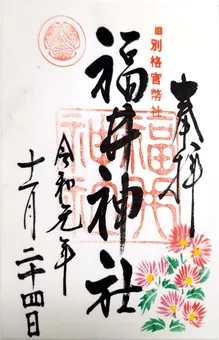 奉拝
旧別格官幣社
福井神社
令和元年
十一月二十四日